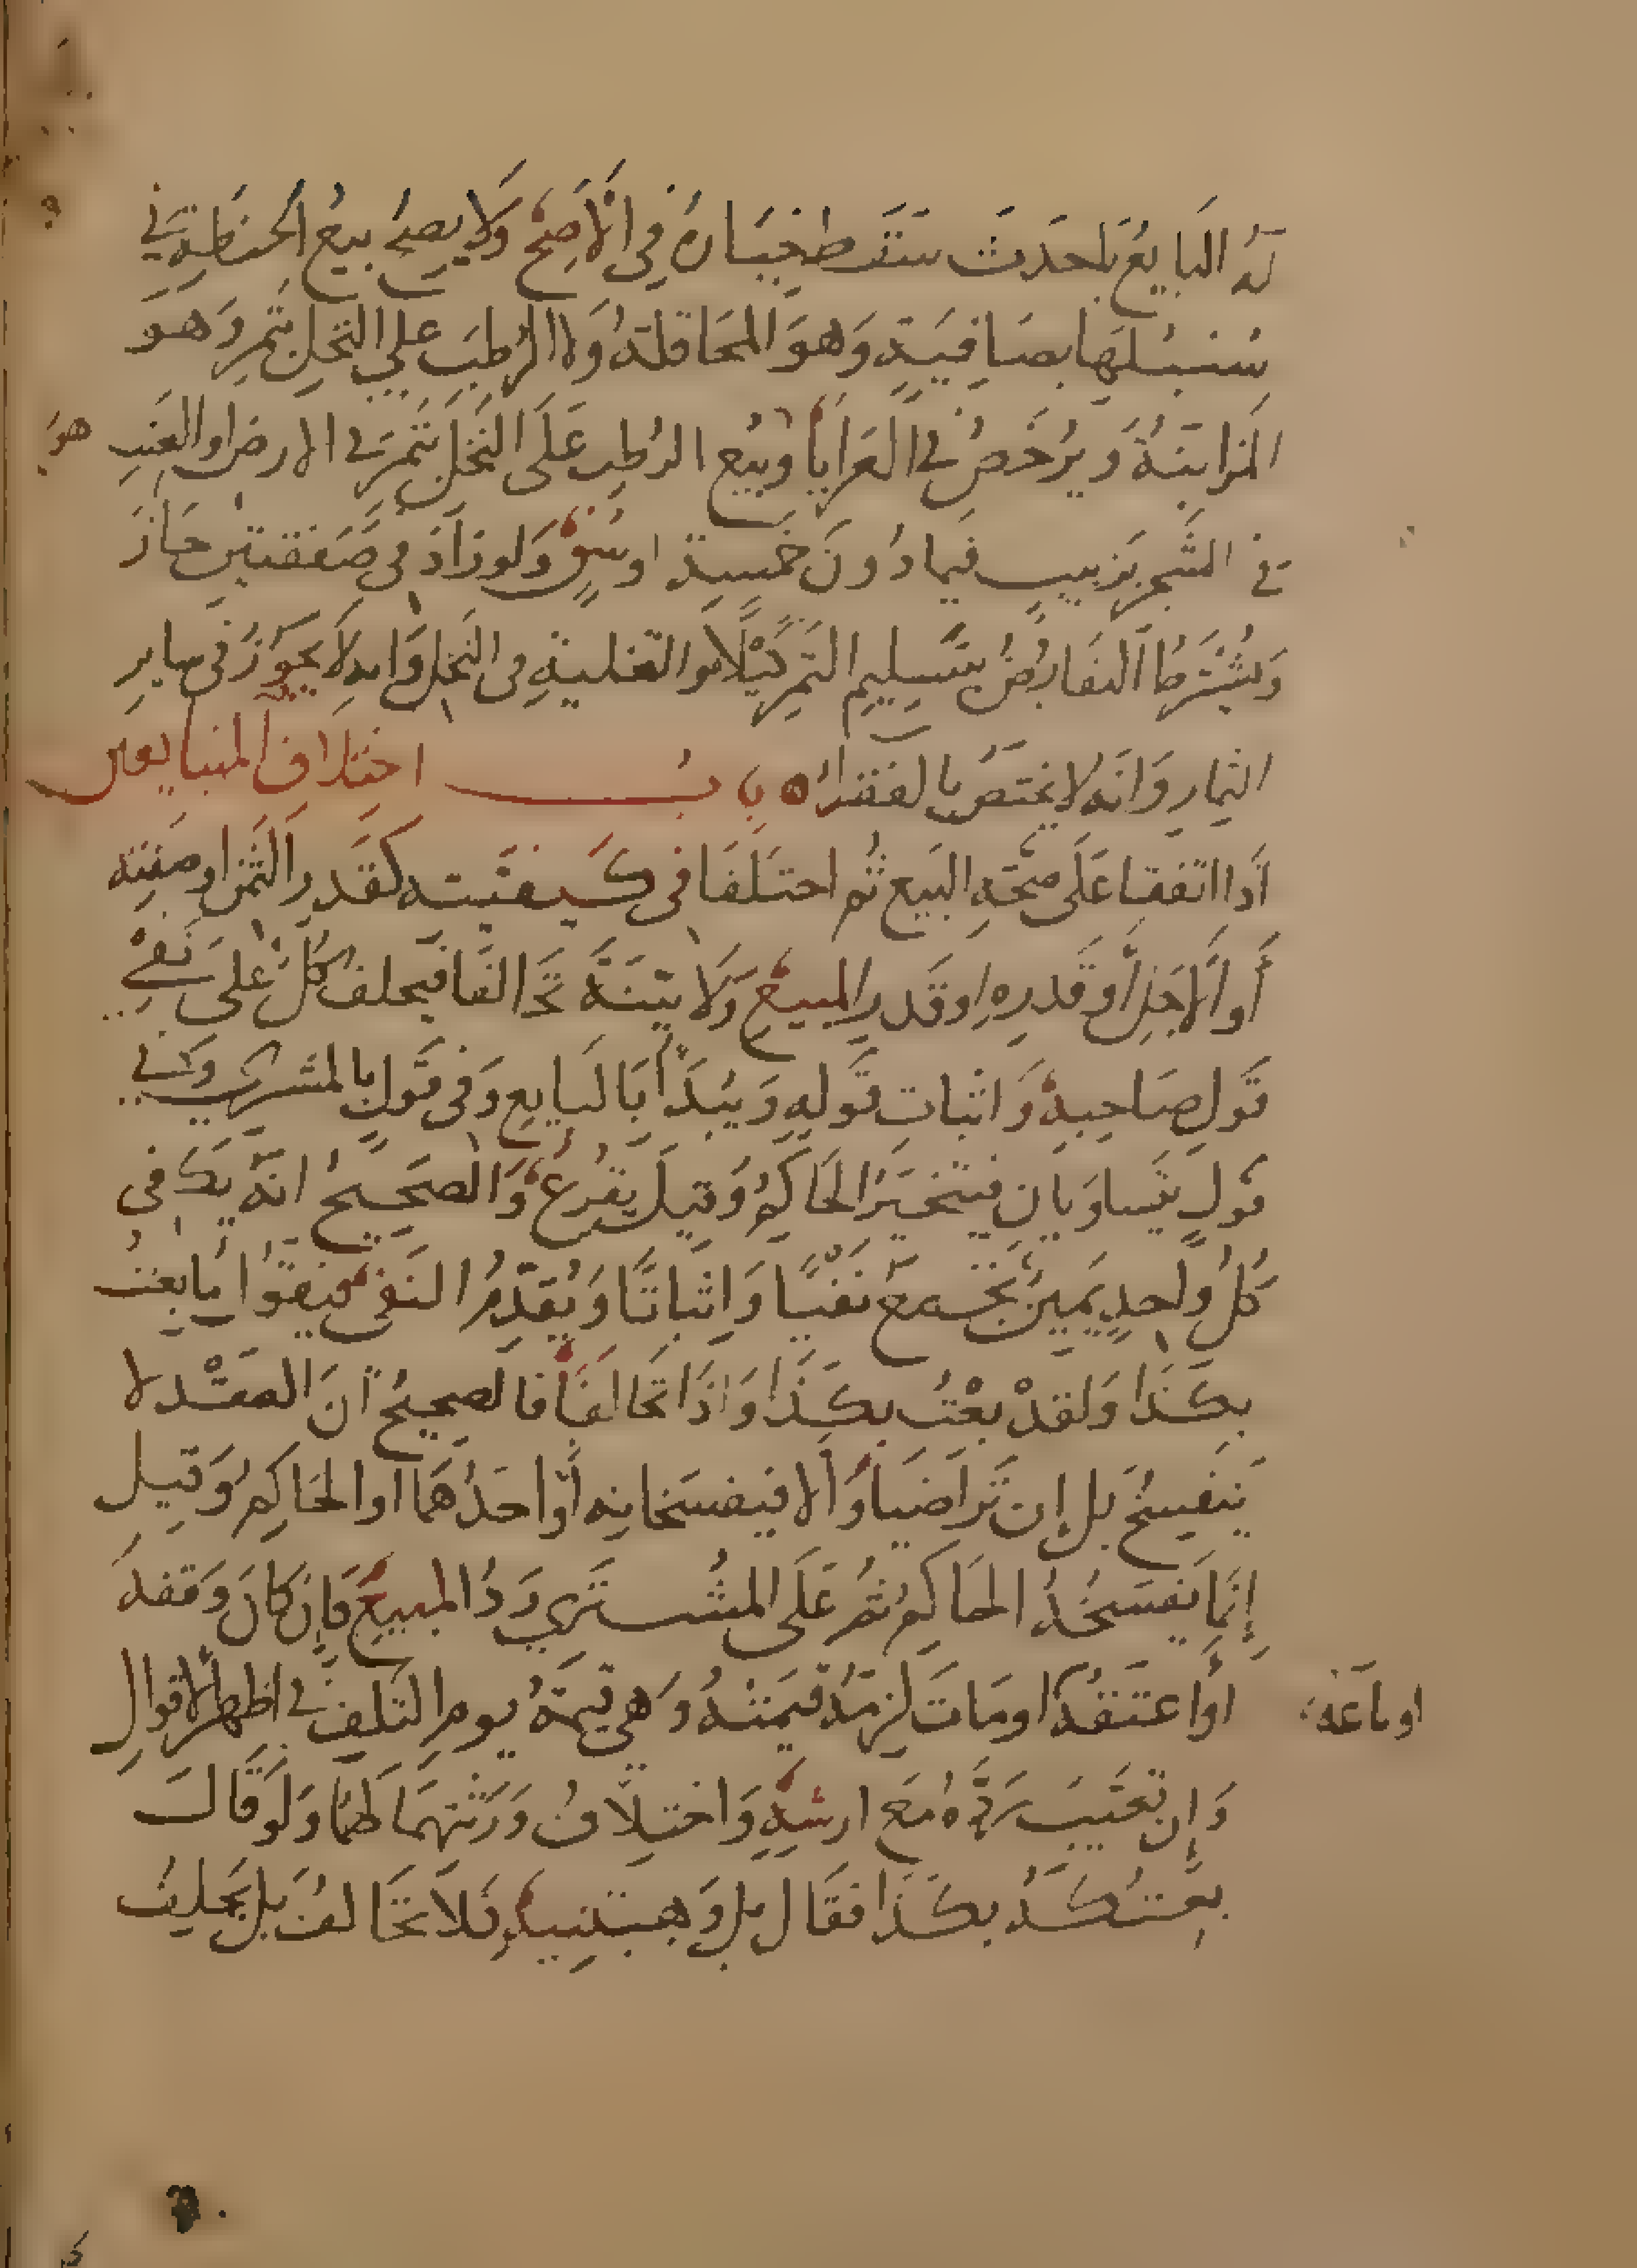 له البايع بما حدث سقط خياره في الاصح ولا يصح بيع الحنطة في
سنبلها بصافية وهو المحاقلة ولا الرطب على النخل بتمر وهو
المزابنة ويرخص في العرايا وبيع الرطب على النخل بتمر في الارض او العنب
هو
في الشجر بزبيب فيما دون خمسة اوسق ولو زاد في صفقتين جاز
ويشترط التقابض بتسليم التمر كيلا والتخلية في النخل وانه لا يجوز في ساير
الثمار وانه لا يختص بالفقراء باب اختلاف المتبايعين
اذا اتفقا على صحة البيع ثم اختلفا في كيفيته كقدر الثمن او صفته
أو الاجل أو قدره او قدر المبيع ولا بينة تحالفا فيحلف كل على نفي
قول صاحبه واثبات قوله ويبدأ بالبايع وفي قول بالمشتري وفي
قول يتساويان فيتخير الحاكم وقيل يقرع والصحيح انه يكفي
كل واحد يمين تجمع نفيا واثباتا ويقدم النفي فيقول ما بعت
بكذا ولقد بعت بكذا واذا تحالفا فالصحيح ان العقد لا
ينفسخ بل إن تراضيا والا فيفسخانه أو احدهما او الحاكم وقيل
إنما يفسخه الحاكم ثم على المشتري رد المبيع فإن كان وقفه
أو اعتقه او مات لزمه قيمته وهي قيمة يوم التلف في اظهر الاقوال
او باعه
وإن تعيب رده مع ارشه واختلاف ورثتهما كهما ولو قال
بعتكه بكذا فقال بل وهبتنيه فلا تحالف بل يحلف